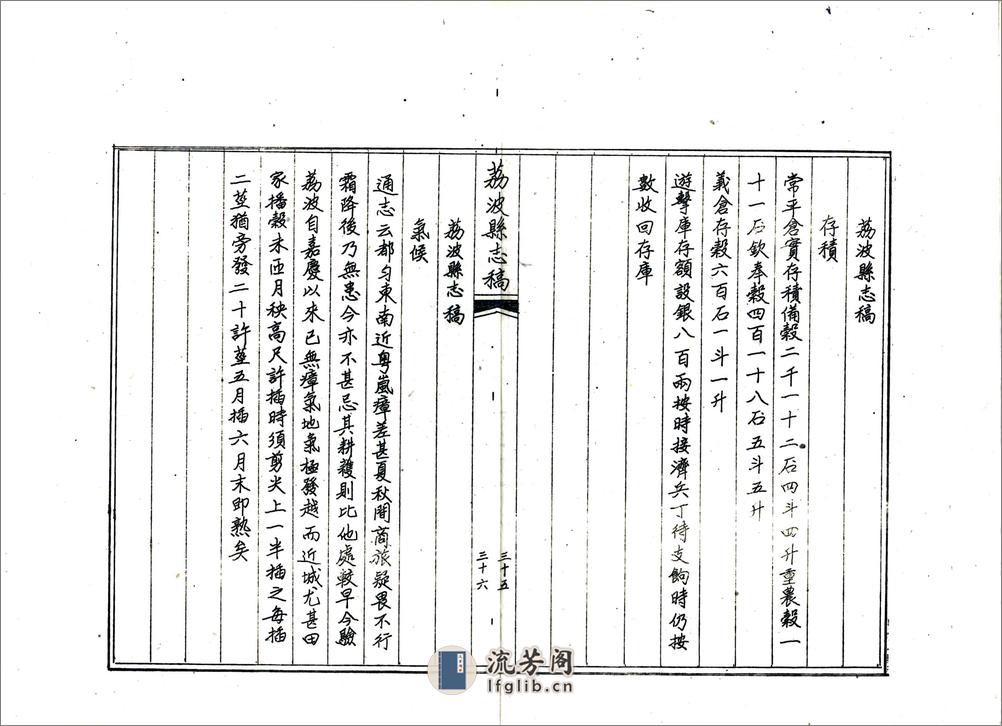 荔波縣志稿
存積
常平倉實存積備穀二千一十二石四斗四升重農穀一
十一石欽奉穀四百一十八石五斗五升
義倉存穀六百石一斗一升
遊擊庫存額設銀八百兩按時接濟兵丁待支餉時仍按
數收回存庫
荔波縣志稿
三十五
三十六
荔波縣志稿
氣候
通志云都勻東南近粵嵐瘴差甚夏秋間商旅疑畏不行
霜降後乃無患今亦不甚忌其耕穫則比他處較早今驗
荔波自嘉慶以來已無瘴氣地氣極發越而近城尤甚田
家播穀未匝月秧高尺許插時須剪尖上一半插之每插
二莖猶旁發二十許莖五月插六月末即熟矣
流芳阁
lfglib.cn